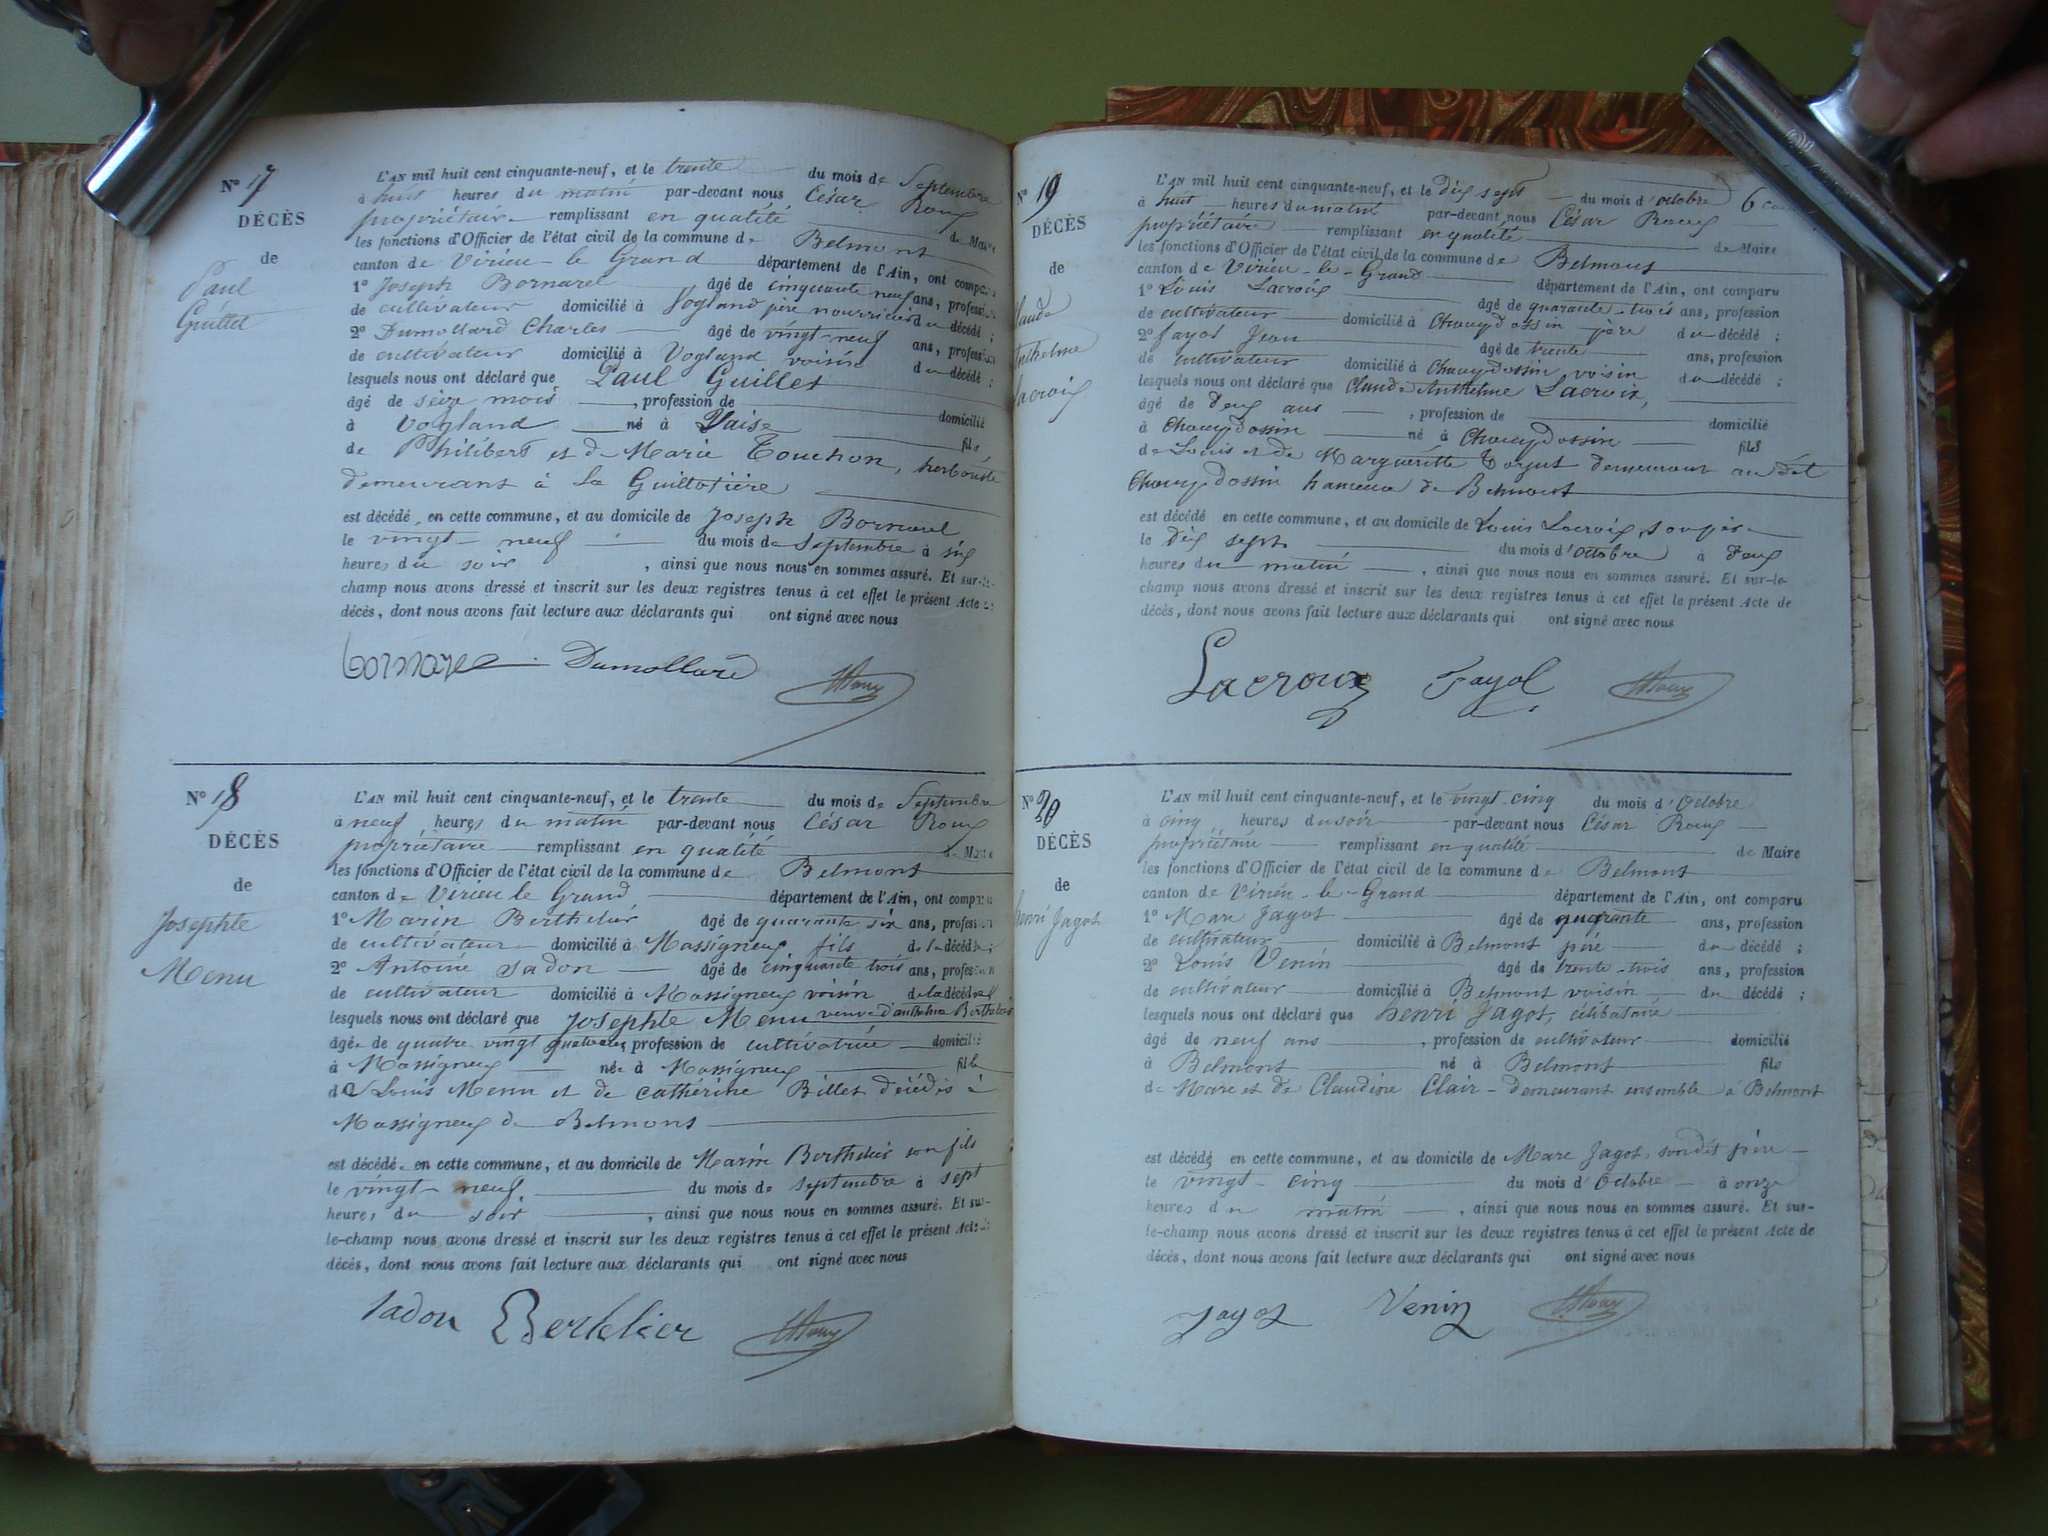 N° 17
DÉCÈS
de
Paul
Guillet
L'AN mil huit cent cinquante-neuf, et le trente du mois de Septembre
à huit heures du matin par-devant nous César Roux
propriétaire remplissant en qualité de Maire
les fonctions d'Officier de l'état civil de la commune de Belmont
canton de Virieu-le Grand département de l'Ain, ont comparu
1° Joseph Bornarel âgé de cinquante neuf ans, profession
de cultivateur domicilié à Vogland père nourricier du décédé ;
2° Dumollard Charles âgé de vingt-neuf ans, profession
de cultivateur domicilié à Vogland voisin du décédé ;
lesquels nous ont déclaré que Paul Guillet
âgé de seize mois, profession de domicilié
à Vogland né à Vaise fils
de Philibert et de Marie Touchon, herboriste
demeurant à la Guillotière
est décédé en cette commune, et au domicile de Joseph Bornarel
le vingt-neuf du mois de Septembre à six
heures du soir, ainsi que nous nous en sommes assuré. Et sur-le-
champ nous avons dressé et inscrit sur les deux registres tenus à cet effet le présent Acte de
décès, dont nous avons fait lecture aux déclarants qui ont signé avec nous
Dumollard Roux
N° 18
DÉCÈS
de
Josephte
Menu
L'AN mil huit cent cinquante-neuf, et le trente du mois de Septembre
à neuf heures du matin par-devant nous César Roux
propriétaire remplissant en qualité de Maire
les fonctions d'Officier de l'état civil de la commune de Belmont
canton de Virieu le Grand département de l'Ain, ont comparu
1° Marin Berthelier âgé de quarante six ans, profession
de cultivateur domicilié à Massigneux fils de la décédée ;
2° Antoine Jadon âgé de cinquante trois ans, profession
de cultivateur domicilié à Massigneux voisin de la décédée
lesquels nous ont déclaré que Josephte Menu veuve d'anthelme Berthelier
âgée de quatre vingt profession de cultivatrice domicilié
à Massigneux née à Massigneux fille
de Louis Menu et de Catherine Billet décédés à
Massigneux de Belmont
est décédée en cette commune, et au domicile de Marin Berthelier son fils
le vingt-neuf du mois de septembre à sept
heures du soir, ainsi que nous nous en sommes assuré. Et sur-
le-champ nous avons dressé et inscrit sur les deux registres tenus à cet effet le présent Acte de
décès, dont nous avons fait lecture aux déclarants qui ont signé avec nous
Jadon Berthelier Roux
N° 19
DÉCÈS
de
laude
nthelme
acroix
L'AN mil huit cent cinquante-neuf, et le dix sept du mois d'octobre 6
à huit heures du matin par-devant nous César Roux
propriétaire remplissant en qualité de Maire
les fonctions d'Officier de l'état civil de la commune de Belmont
canton de Virieu-le-Grand département de l'Ain, ont comparu
1° Louis Lacroix âgé de quarante-trois ans, profession
de cultivateur domicilié à Chavydossin père du décédé ;
2° Fayol Jean âgé de trente ans, profession
de cultivateur domicilié à Chavydossin voisin du décédé ;
lesquels nous ont déclaré que Claude Anthelme Lacroix,
âgé de deux ans, profession de domicilié
à Chavydossin né à Chavydossin fils
de Louis et de Marguerite demeurant au dit
Chavydossin hameau de Belmont
est décédé en cette commune, et au domicile de Louis Lacroix, son père
le dix sept du mois d'octobre à deux
heures du matin, ainsi que nous nous en sommes assuré. Et sur-le-
champ nous avons dressé et inscrit sur les deux registres tenus à cet effet le présent Acte de
décès, dont nous avons fait lecture aux déclarants qui ont signé avec nous
Lacroix Fayol Roux
N° 20
DÉCÈS
de
henri Jagot
L'AN mil huit cent cinquante-neuf, et le vingt-cinq du mois d'Octobre
à cinq heures du soir par-devant nous César Roux
propriétaire remplissant en qualité de Maire
les fonctions d'Officier de l'état civil de la commune de Belmont
canton de Virieu-le-Grand département de l'Ain, ont comparu
1° Marc Jagot âgé de quarante ans, profession
de cultivateur domicilié à Belmont père du décédé ;
2° Louis Venin âgé de trente-trois ans, profession
de cultivateur domicilié à Belmont voisin du décédé ;
lesquels nous ont déclaré que henri Jagot, célibataire
âgé de neuf ans, profession de cultivateur domicilié
à Belmont né à Belmont fils
de Marc et de Claudine Clair demeurant ensemble à Belmont
est décédé en cette commune, et au domicile de Marc Jagot, son dit père
le vingt-cinq du mois d'Octobre à onze
heures du matin, ainsi que nous nous en sommes assuré. Et sur-
le-champ nous avons dressé et inscrit sur les deux registres tenus à cet effet le présent Acte de
décès, dont nous avons fait lecture aux déclarants qui ont signé avec nous
Jagot Venin Roux